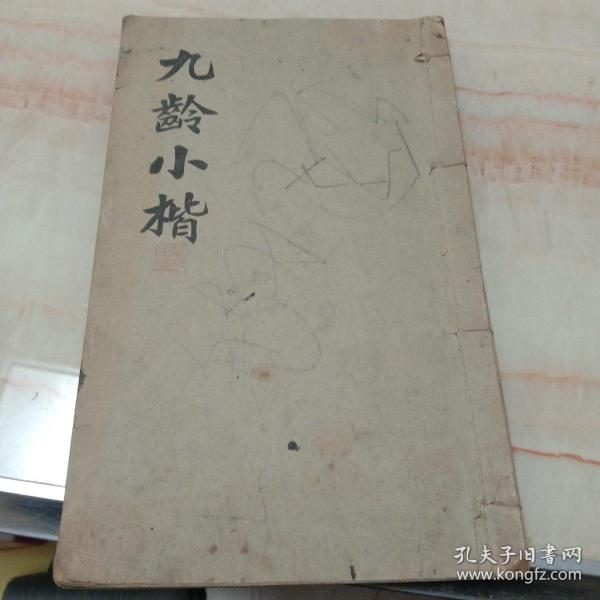 九齡小楷
孔夫子旧書网
www.kongfz.com